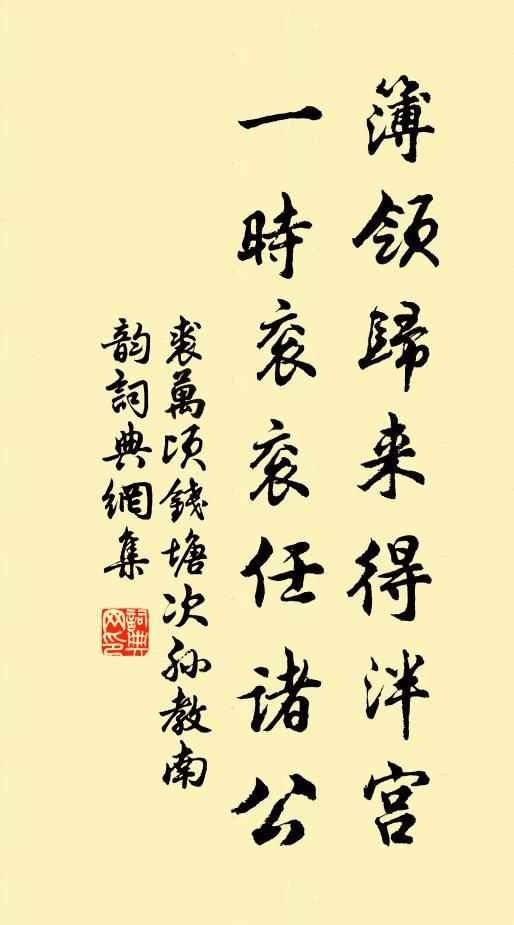 簿領歸来得泮宮
一時衮衮任諸公
裘萬頃錢塘次孙教南
韵詞典網集
詞典网印